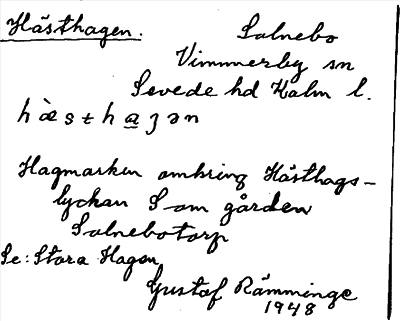 Hästhagen.
Solnebo
Vimmerby sn
Sevede hd Kalm l.
hæ̀sthaȷən
Hagmarken omkring Hästhags-
lyckan S om gården
Solnebotorp
Se: Stora Hagen
Gustaf Rämminge
1948